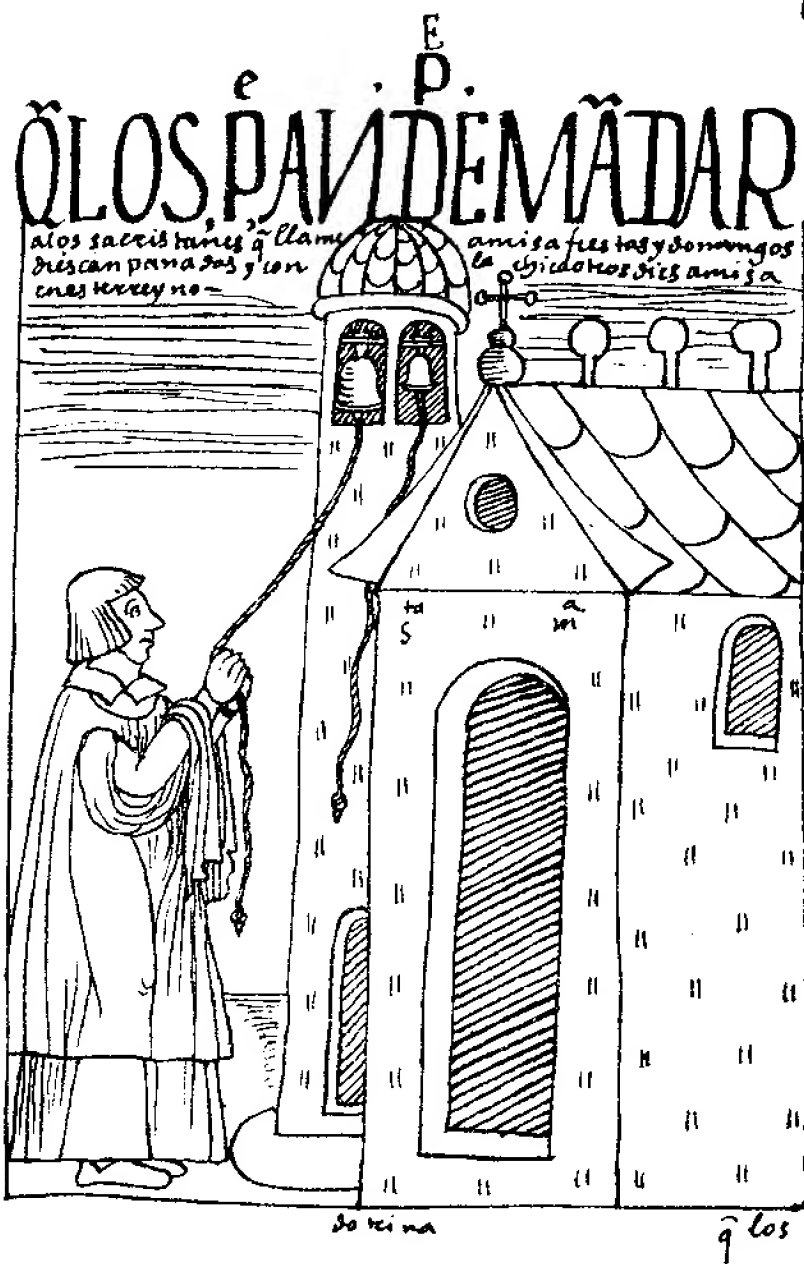 E
e P.
Q̃LOS PADE MÃDAR
alos sacristanes q̃ llame amisa fiestas y domingos
dies canpanadas y con la chica otros dies amisa
en este rreyno–
S ta m a
dotrina
q̃ los